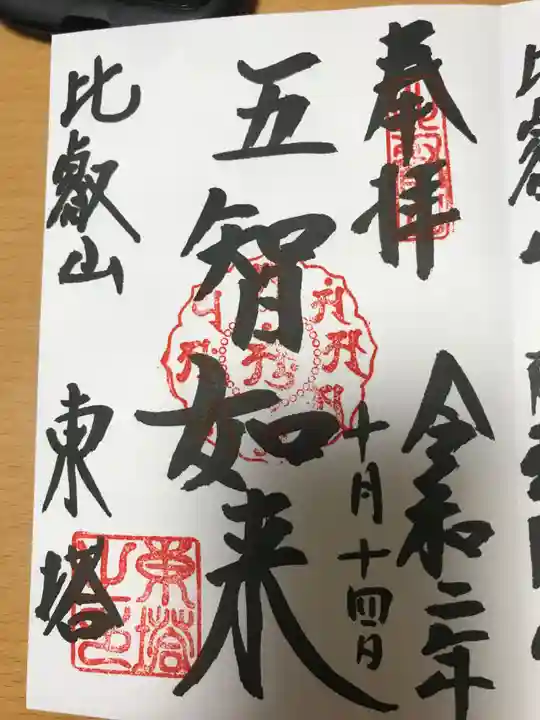 奉拝
令和二年
十月十四日
五智如来
比叡山
東塔
東塔之印